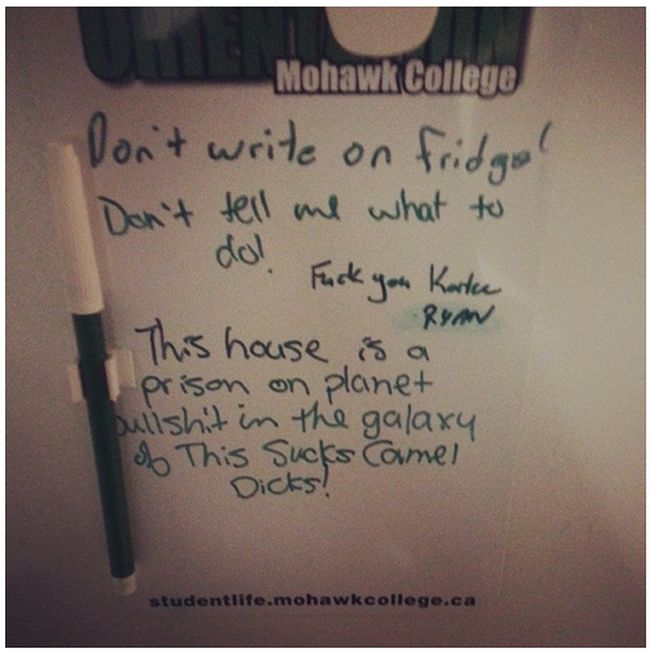 Mohawk College
Don't write on fridge!
Don't tell me what to
do!
Fuck you
RYAN
This house is a
prison on planet
bullshit in the galaxy
of This Sucks Camel
Dicks!
studentlife.mohawkcollege.ca